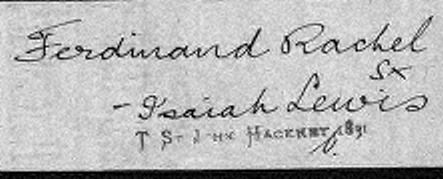 Ferdinand Rachel
Sx
- Isaiah Lewis
T St J HACKNEY 1891